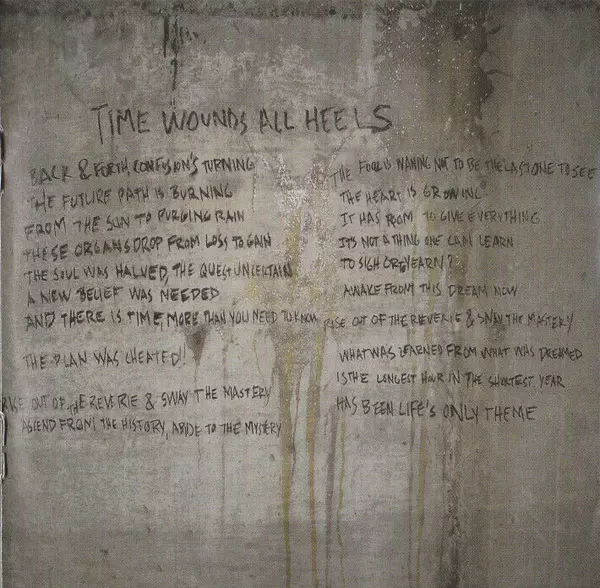 TIME WOUNDS ALL HEELS
BACK & FORTH CONFUSION'S TURNING
THE FUTURE PATH IS BURNING
FROM THE SUN TO PURGING RAIN
THESE ORGANS DROP FROM LOSS TO GAIN
THE SOUL WAS HALVED, THE QUEST UNCERTAIN
A NEW BELIEF WAS NEEDED
AND THERE IS TIME, MORE THAN YOU NEED TO KNOW
THE PLAN WAS CHEATED!!
RISE OUT OF THE REVERIE & SWAY THE MASTERY
ASCEND FROM THE HISTORY, ABIDE TO THE MYSTERY
THE FOOL IS WANING NOT TO BE THE LAST ONE TO SEE
THE HEART IS GROWING
IT HAS ROOM TO GIVE EVERYTHING
IT'S NOT A THING ONE CAN LEARN
TO SIGH OR TO YEARN?
AWAKE FROM THIS DREAM NOW
RISE OUT OF THE REVERIE & SWAY THE MASTERY
WHAT WAS LEARNED FROM WHAT WAS DREAMED
IS THE LONGEST HOUR IN THE SHORTEST YEAR
HAS BEEN LIFE'S ONLY THEME